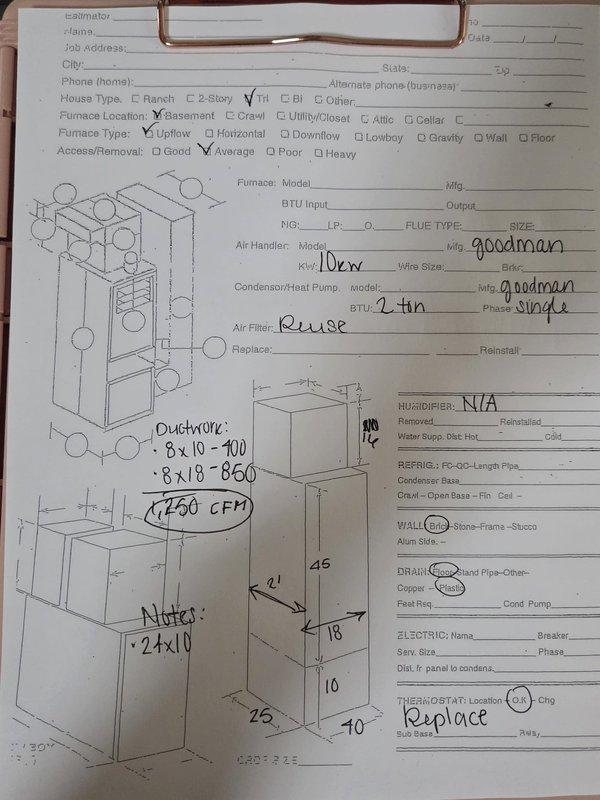 Estimator
Name
Date / /
Job Address:
City: State: Zip
Phone (home): Alternate phone (business)
House Type. Ranch 2-Story Tri Bi Other:
Furnace Location: Basement Crawl Utility/Closet Attic Cellar
Furnace Type: Upflow Horizontal Downflow Lowboy Gravity Wall Floor
Access/Removal: Good Average Poor Heavy
Furnace: Model Mfg.
BTU Input Output
NG: LP: O. FLUE TYPE: SIZE:
Air Handler: Model Mfg. goodman
KW: 10kw Wire Size: Brkr:
Condensor/Heat Pump. Model: Mfg. goodman
BTU: 2 ton Phase single
Air Filter: Reuse
Replace: Reinstall
HUMIDIFIER: N/A
Removed Reinstalled
Water Supp. Dist: Hot Cold
REFRIG.: FC-QC-Length Pipe
Condenser Base
Crawl - Open Base - Fin Ceil -
WALL: Brick-Stone-Frame-Stucco
Alum Side. -
DRAIN: Floor Stand Pipe-Other-
Copper - Plastic
Feet Req. Cond Pump
ELECTRIC: Name Breaker
Serv. Size Phase
Dist. fr panel to condens.
THERMOSTAT: Location - O.K - Chg
Replace
Sub Base
Ductwork:
• 8x10 - 400
• 8x18 - 850
1,250 CFM
Notes:
• 24x10
14
45
21
18
10
25
40